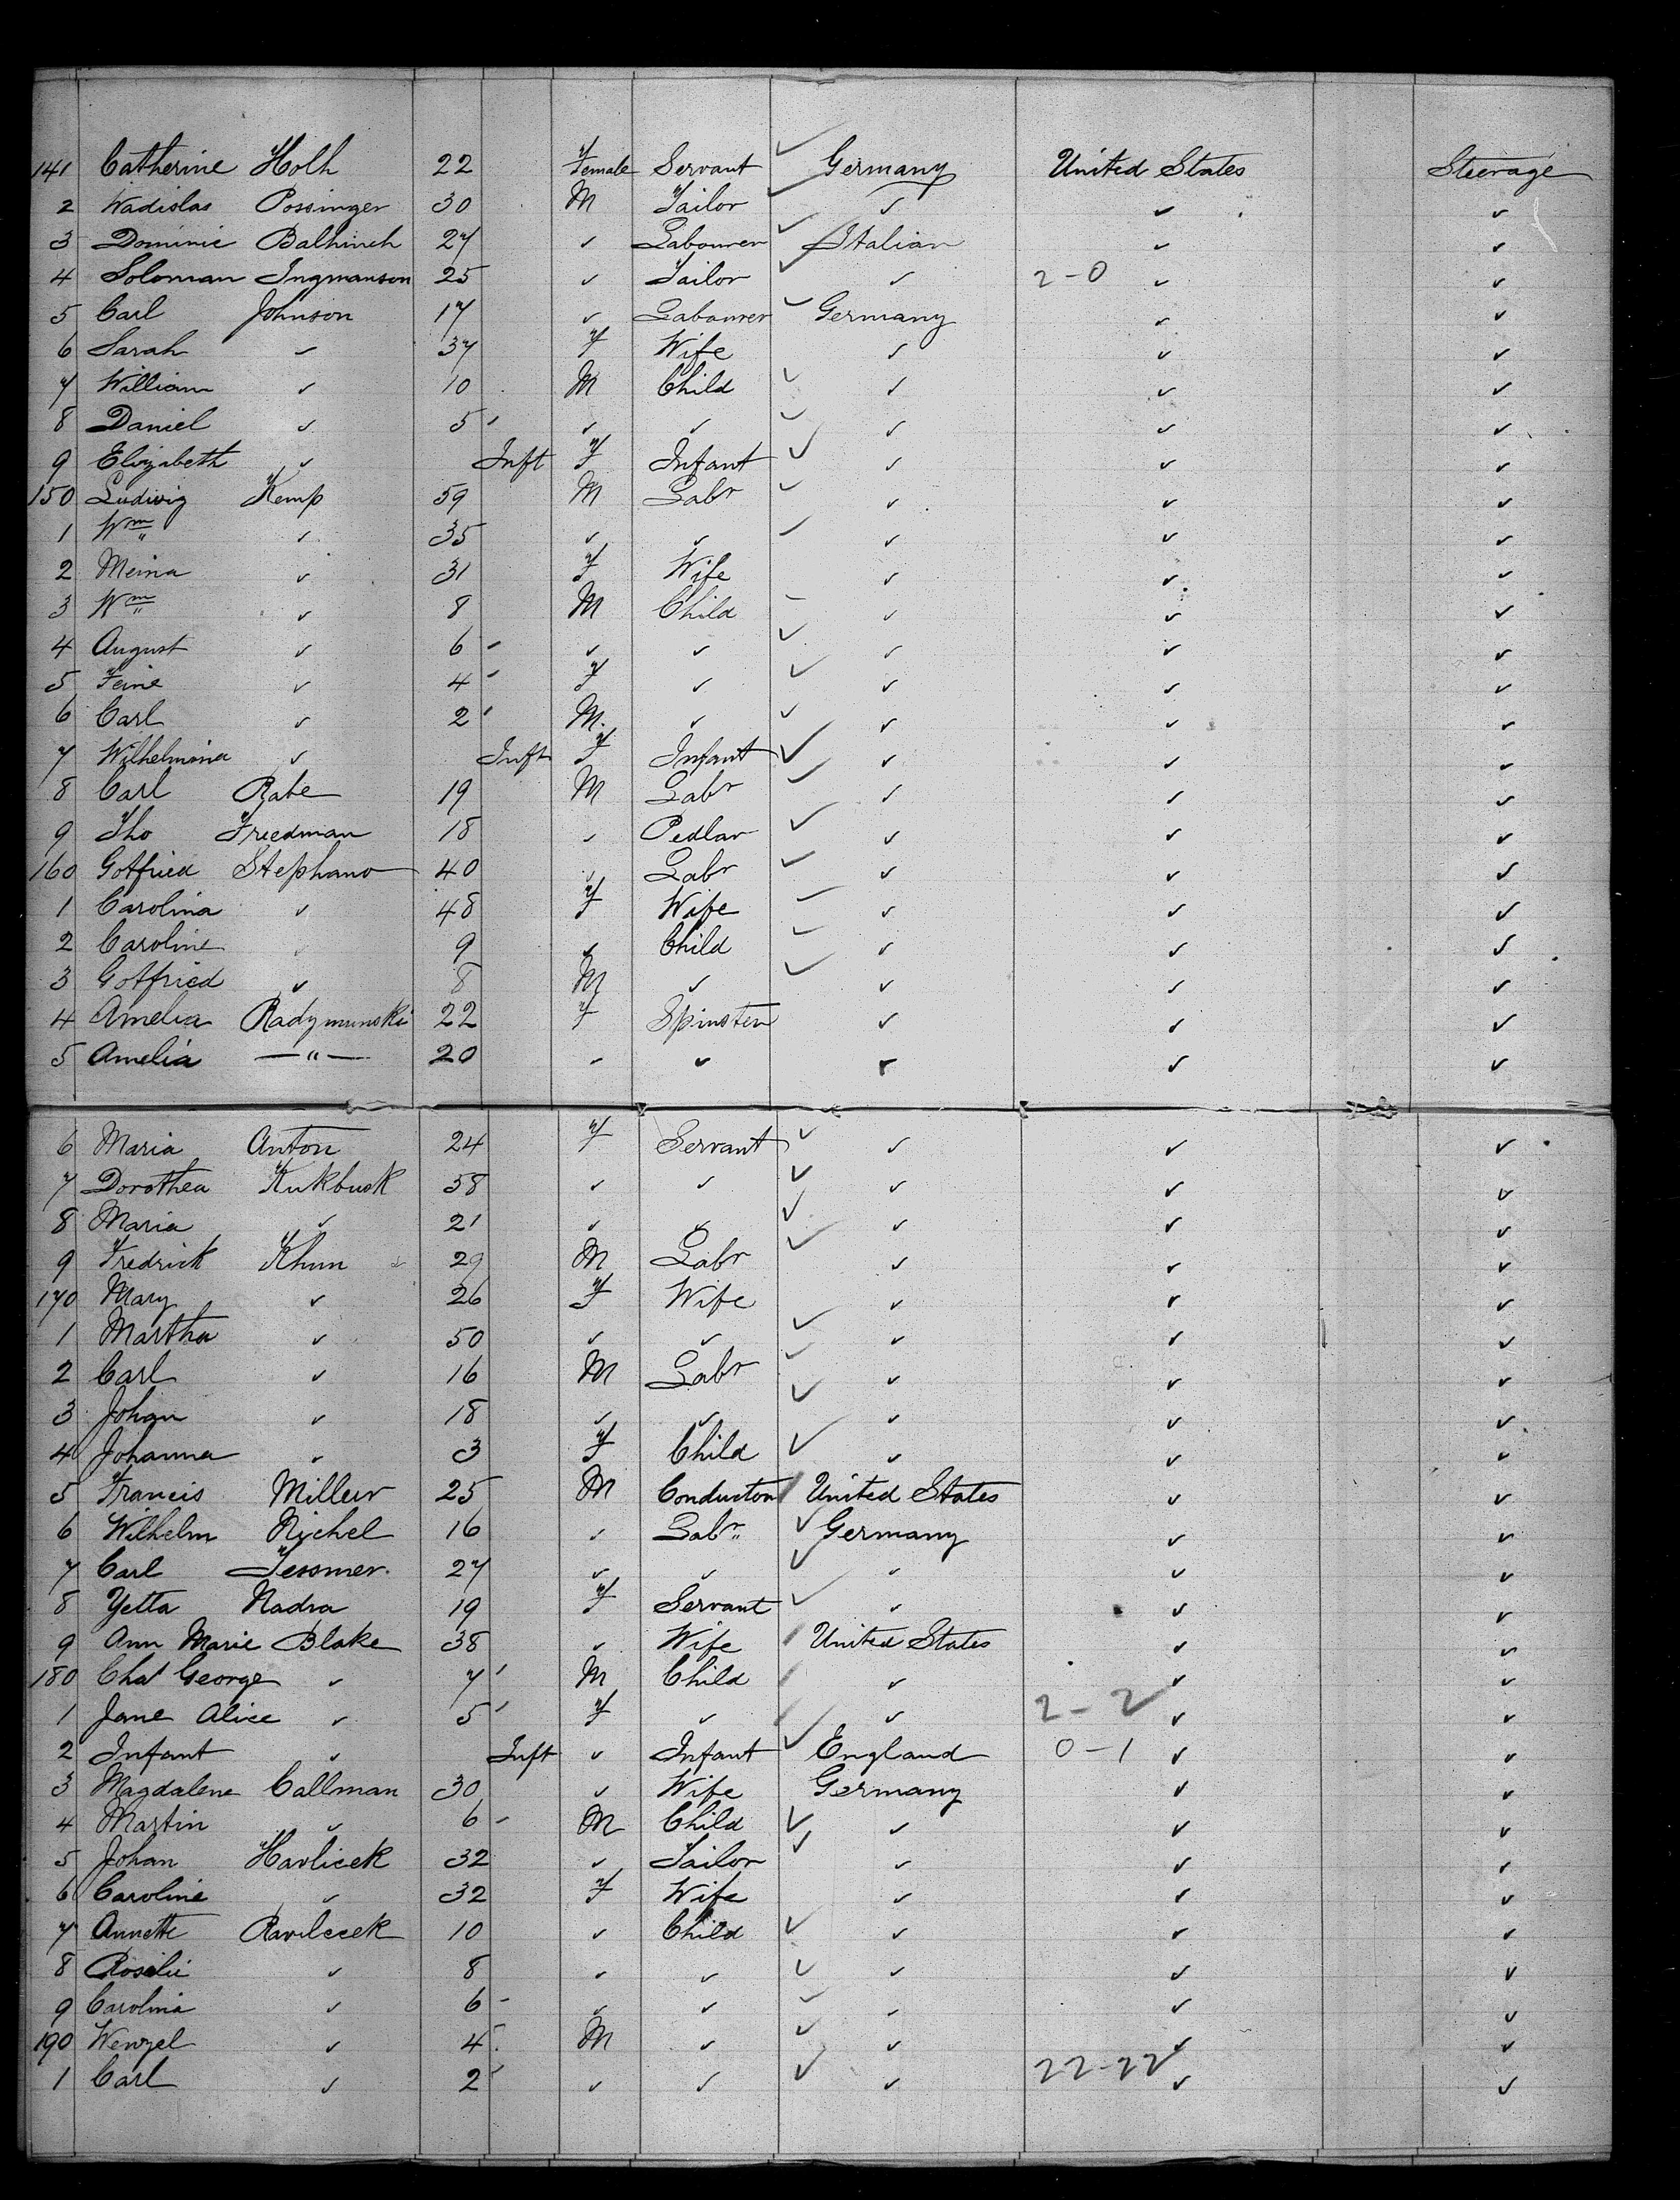 141 Catherine Holh 22 Female Servant Germany United States Steerage
2 Wadislas Possinger 30 M Tailor ✓ ✓ ✓
3 Dominic Balhinch 27 ✓ Labourer Italian ✓ ✓
4 Soloman Ingmanson 25 ✓ Tailor ✓ 2-0 ✓ ✓
5 Carl Johnson 17 ✓ Labourer Germany ✓ ✓
6 Sarah ✓ 37 F Wife ✓ ✓ ✓
7 William ✓ 10 M Child ✓ ✓ ✓
8 Daniel ✓ 5 ✓ ✓ ✓ ✓ ✓
9 Elizabeth ✓ Inft F Infant ✓ ✓ ✓
150 Ludwig Kemp 59 M Labr ✓ ✓ ✓
1 Wm ✓ 35 ✓ ✓ ✓ ✓ ✓
2 Meina ✓ 31 F Wife ✓ ✓ ✓
3 Wm ✓ 8 M Child ✓ ✓ ✓
4 August ✓ 6 ✓ ✓ ✓ ✓ ✓
5 Feine ✓ 4 F ✓ ✓ ✓ ✓
6 Carl ✓ 2 M. ✓ ✓ ✓ ✓
7 Wilhelmina ✓ Inft F Infant ✓ ✓ ✓
8 Carl Rabe 19 M Labr ✓ ✓ ✓
9 Tho Friedman 18 ✓ Pedlar ✓ ✓ ✓
160 Gotfried Stephano 40 ✓ Labr ✓ ✓ ✓
1 Carolina ✓ 48 F Wife ✓ ✓ ✓
2 Caroline ✓ 9 ✓ Child ✓ ✓ ✓
3 Gotfried ✓ 8 M ✓ ✓ ✓ ✓
4 Amelia Radymunski 22 F Spinster ✓ ✓ ✓
5 Amelia —"— 20 ✓ ✓ ✓ ✓ ✓
6 Maria Anton 24 F Servant ✓ ✓ ✓
7 Dorothea Kukbusk 58 ✓ ✓ ✓ ✓ ✓
8 Maria ✓ 21 ✓ ✓ ✓ ✓ ✓
9 Fredrick Khun 29 M Labr ✓ ✓ ✓
170 Mary ✓ 26 F Wife ✓ ✓ ✓
1 Martha ✓ 50 ✓ ✓ ✓ ✓ ✓
2 Carl ✓ 16 M Labr ✓ ✓ ✓
3 Johan ✓ 18 ✓ ✓ ✓ ✓ ✓
4 Johanna ✓ 3 F Child ✓ ✓ ✓
5 Francis Miller 25 M Conductor United States ✓ ✓
6 Wilhelm Nichel 16 ✓ Labr Germany ✓ ✓
7 Carl Tessmer 27 ✓ ✓ ✓ ✓ ✓
8 Yetta Nadra 19 F Servant ✓ ✓ ✓
9 Ann Marie Blake 38 ✓ Wife United States ✓ ✓
180 Chat George ✓ 7 M Child ✓ ✓ ✓
1 Jane Alice ✓ 5 F ✓ ✓ 2-2 ✓ ✓
2 Infant ✓ Inft ✓ Infant England 0-1 ✓ ✓
3 Magdalene Callman 30 ✓ Wife Germany ✓ ✓
4 Martin ✓ 6 M Child ✓ ✓ ✓
5 Johan Havlicek 32 ✓ Tailor ✓ ✓ ✓
6 Caroline ✓ 32 F Wife ✓ ✓ ✓
7 Annette Ravlicek 10 ✓ Child ✓ ✓ ✓
8 Rosalie ✓ 8 ✓ ✓ ✓ ✓ ✓
9 Carolina ✓ 6 ✓ ✓ ✓ ✓ ✓
190 Wenzel ✓ 4 M ✓ ✓ ✓ ✓
1 Carl ✓ 2 ✓ ✓ ✓ 22-22 ✓ ✓